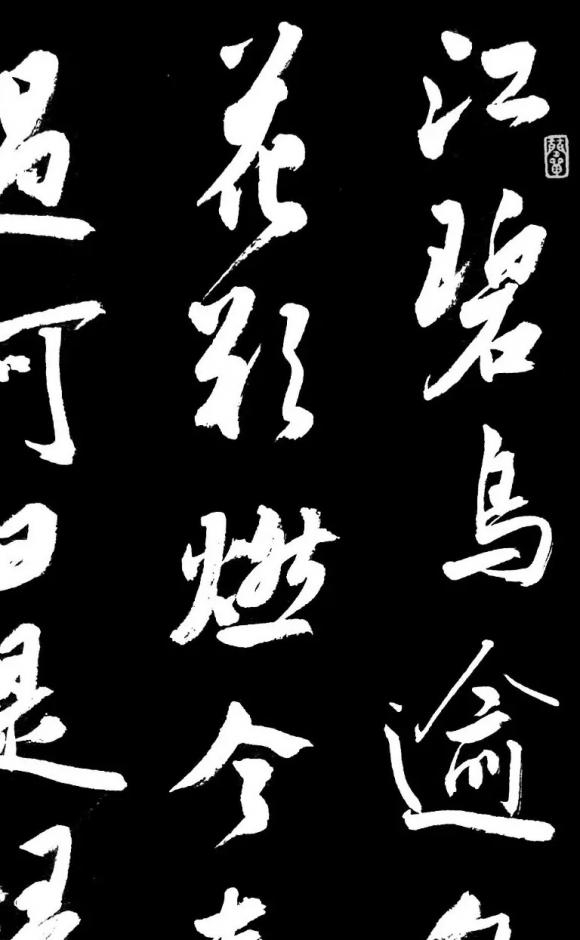 江碧鳥逾
花欲燃今
過何日是